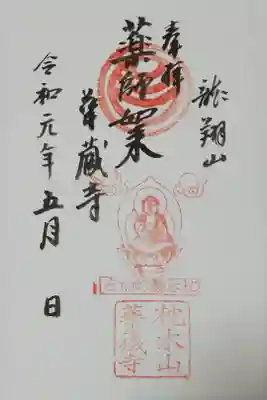 奉拝
龍翔山
薬師如来
華蔵寺
令和元年五月 日
枕木山
華蔵寺